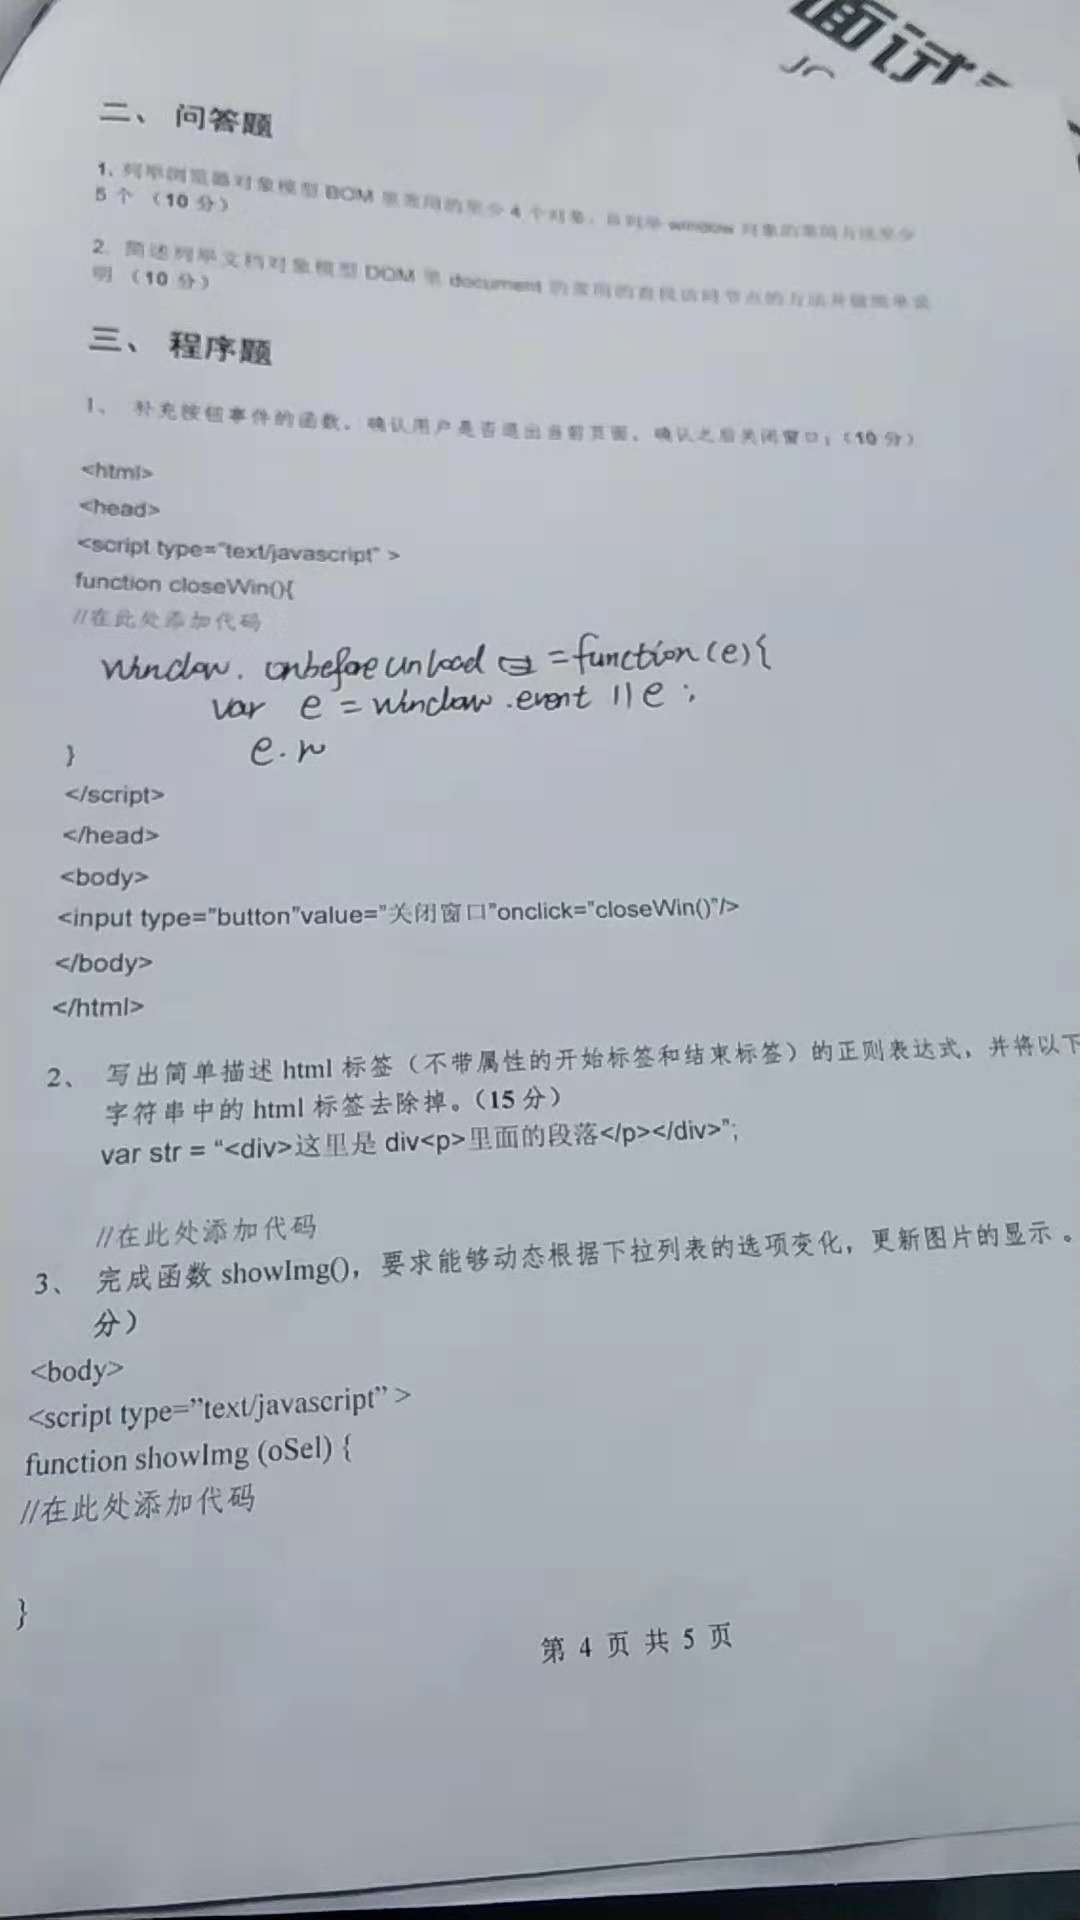 面试
二、 问答题
1、列举浏览器对象模型 BOM 里常用的至少 4 个对象，并列举 window 对象的常用方法至少
5 个 （10 分）
2. 简述列举文档对象模型 DOM 里 document 的常用的查找访问节点的方法并做简单说
明 （10 分）
三、 程序题
1、 补充按钮事件的函数，确认用户是否退出当前页面，确认之后关闭窗口；（10 分）
<html>
<head>
<script type="text/javascript" >
function closeWin(){
//在此处添加代码
window. onbeforeunload =function(e){
var e = window.event || e ;
e.r
}
</script>
</head>
<body>
<input type="button"value="关闭窗口"onclick="closeWin()"/>
</body>
</html>
2、 写出简单描述 html 标签（不带属性的开始标签和结束标签）的正则表达式，并将以下
字符串中的 html 标签去除掉。（15 分）
var str = “<div>这里是 div<p>里面的段落</p></div>”;
//在此处添加代码
3、 完成函数 showImg()，要求能够动态根据下拉列表的选项变化，更新图片的显示 。
分）
<body>
<script type=”text/javascript” >
function showImg (oSel) {
//在此处添加代码
}
第 4 页 共 5 页